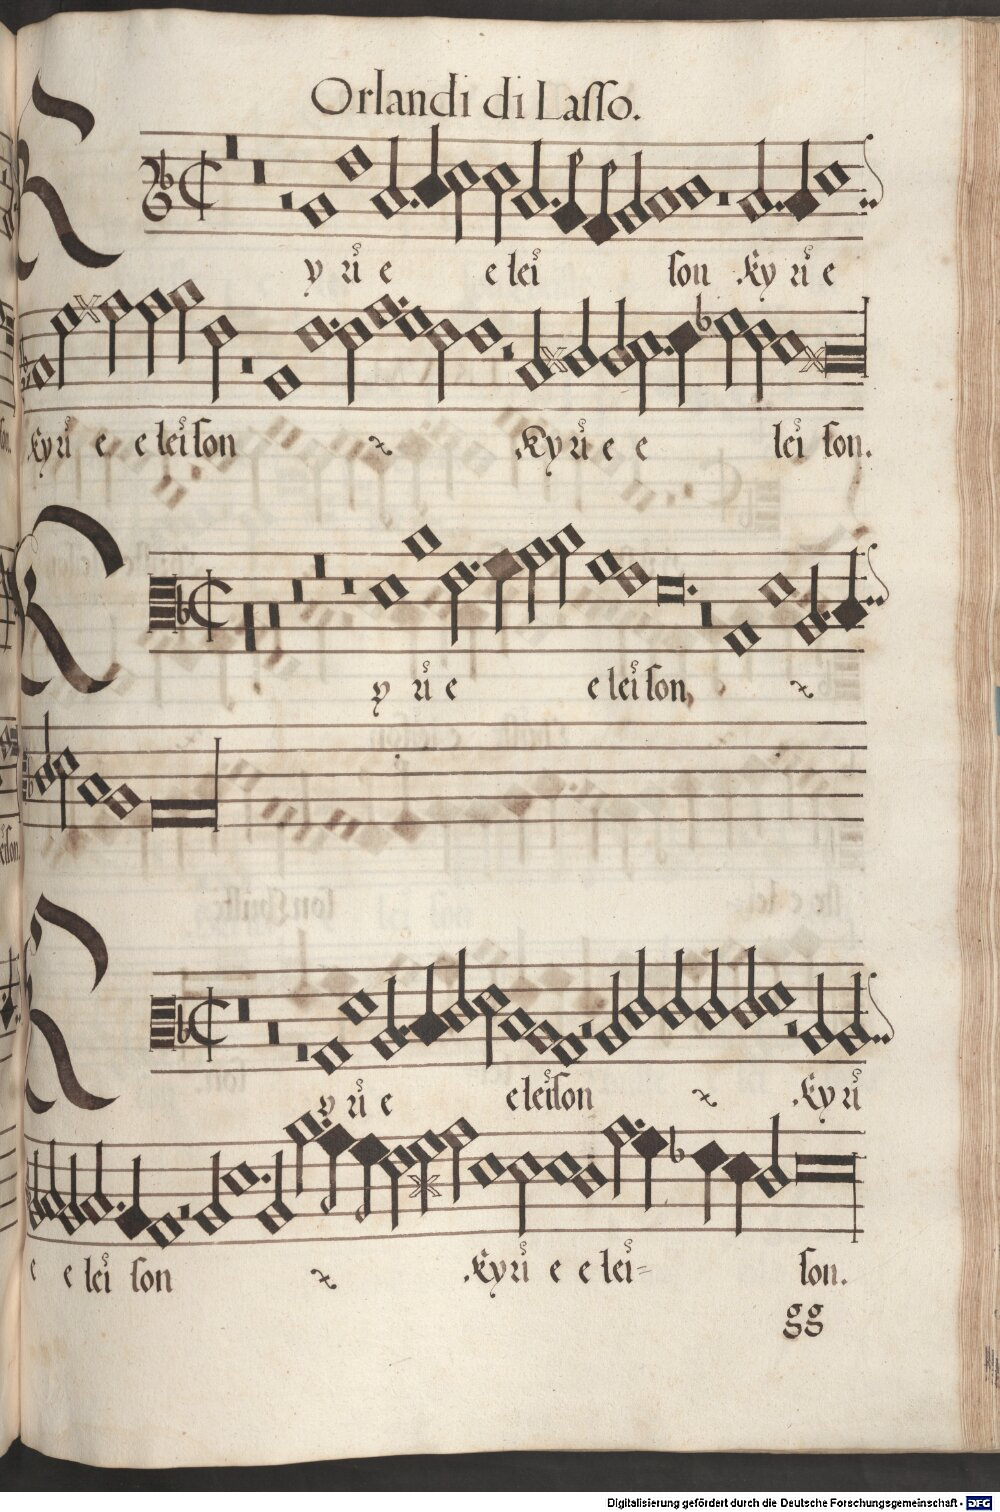 Orlandi di Lasso.
K yrie eleison Kyrie
Kyrie eleison Kyrie e leison.
K yrie eleison
K yrie eleison Kyri
e eleison Kyrie elei= son.
gg
Digitalisierung gefördert durch die Deutsche Forschungsgemeinschaft - DFG